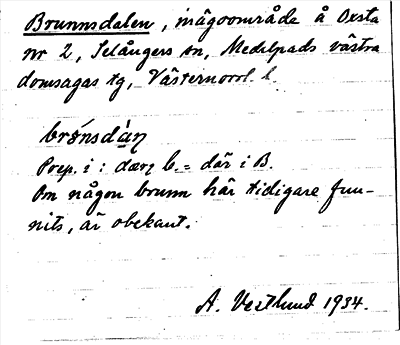 Brunnsdalen, inägoområde å Oxsta
nr 2, Selångers sn, Medelpads västra
domsagas tg, Västernorrl. l.
brǿnsdàɳ
Prep. i: dærɳ b. = där i B.
Om någon brunn här tidigare fun-
nits, är obekant.
A. Vestlund 1934.